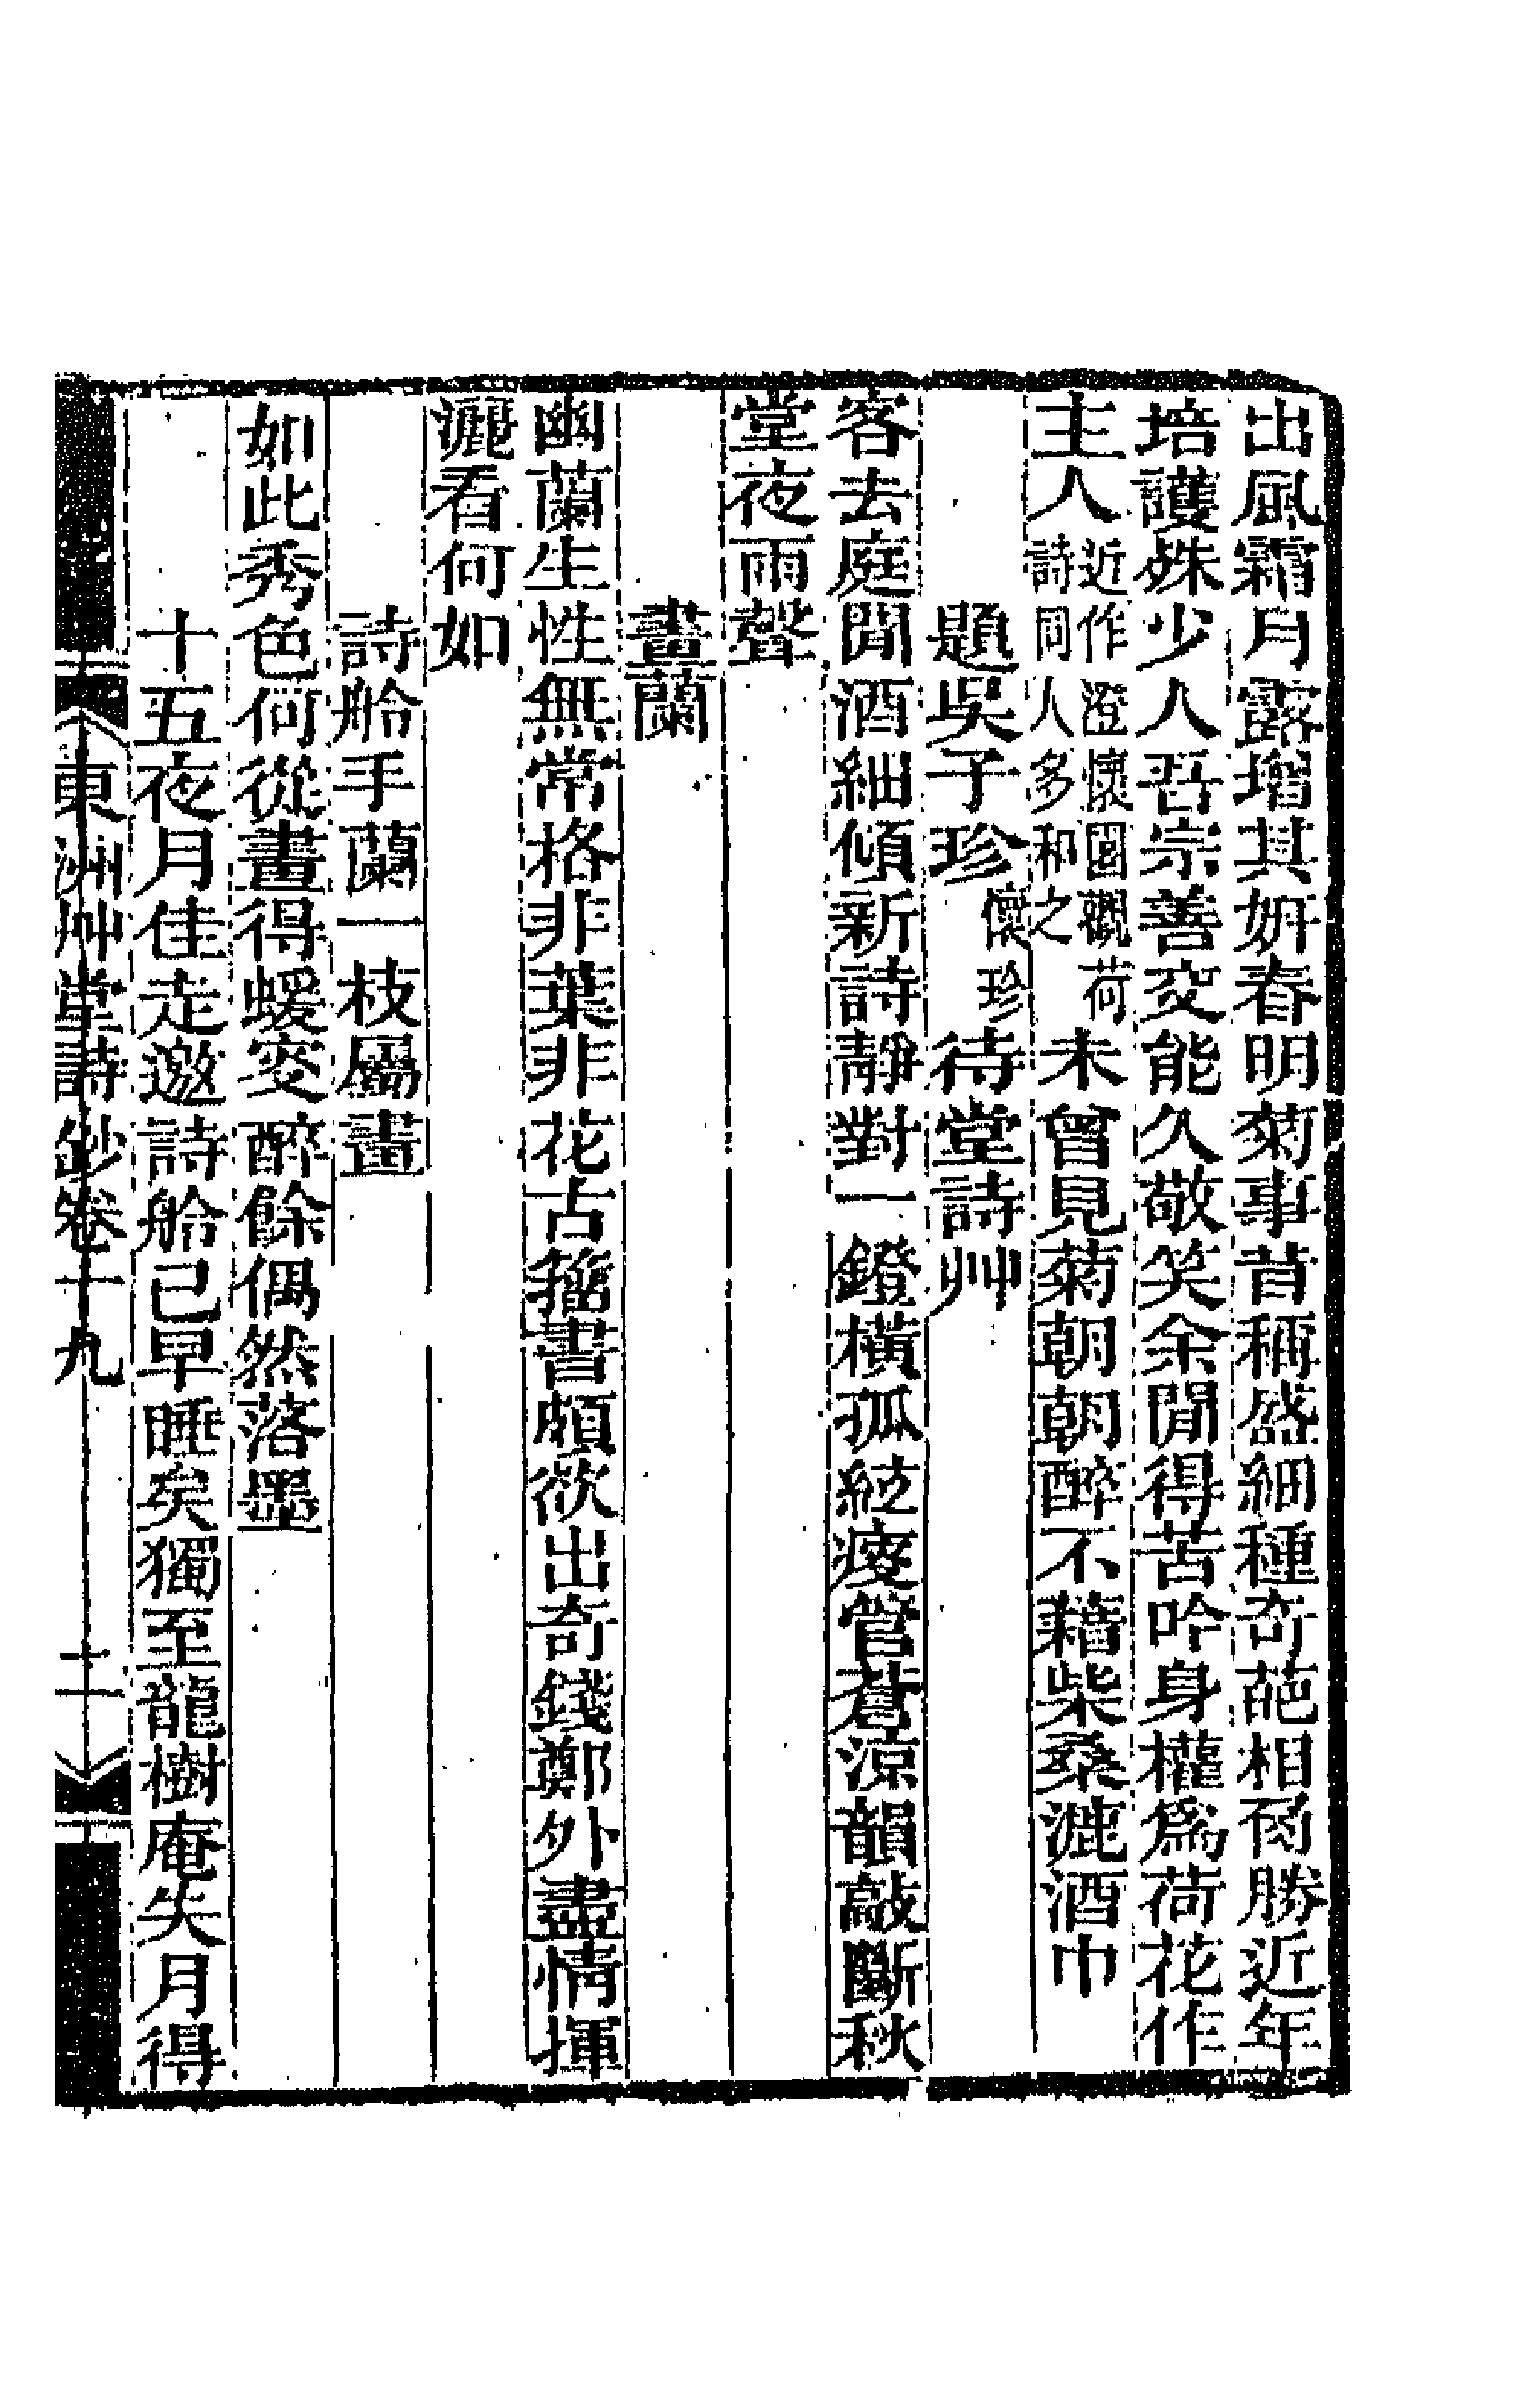 出風霜月露增其妍春明菊事昔稱盛細種奇葩相矜勝近年
培護殊少人吾宗善交能久敬笑余閒得苦吟身權爲荷花作
主人近作澄懷園觀荷詩同人多和之未曾見菊朝朝醉不藉柴桑漉酒巾
題吳子珍懷珍待堂詩艸
客去庭閒酒細傾新詩靜對一鐙橫孤絃瘦管蒼涼韻敲斷秋
堂夜雨聲
畫蘭
幽蘭生性無常格非葉非花古籀書頗欲出奇錢鄭外盡情揮
灑看何如
詩舲手蘭一枝屬畫
如此秀色何從畫得蝯叟醉餘偶然落墨
十五夜月佳走邀詩舲已早睡矣獨至龍樹庵失月得
東洲艸堂詩鈔卷十九
二十